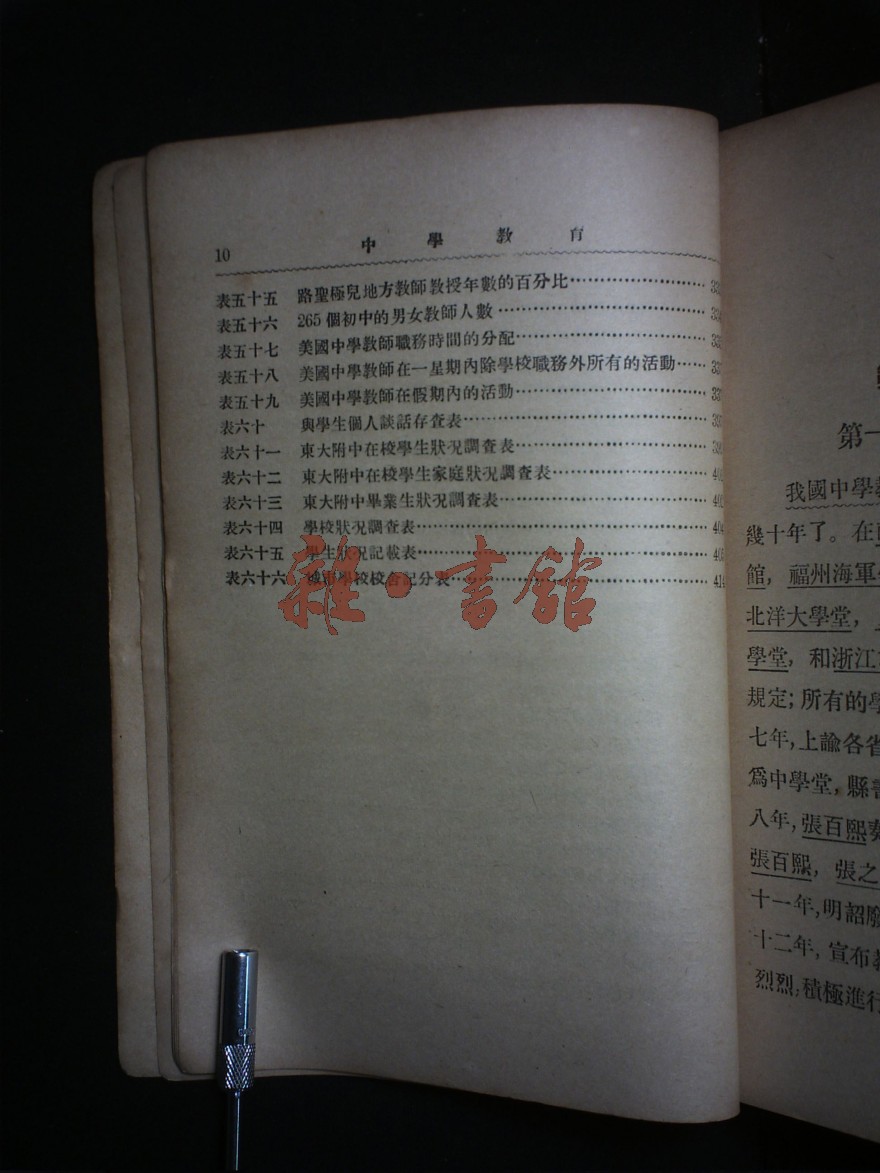 10 中學教育
表五十五 路聖極兒地方教師教授年數的百分比
表五十六 265個初中的男女教師人數
表五十七 美國中學教師職務時間的分配
表五十八 美國中學教師在一星期內除學校職務外所有的活動
表五十九 美國中學教師在假期內的活動
表六十 與學生個人談話存查表
表六十一 東大附中在校學生狀況調查表
表六十二 東大附中在校學生家庭狀況調查表
表六十三 東大附中畢業生狀況調查表
表六十四 學校狀況調查表 404
表六十五 學生狀況記載表
表六十六 城市學校校舍記分表 414
雜·書館
第一
我國中學教
幾十年了。在
館,福州海軍
北洋大學堂,
學堂,和浙江
規定;所有的學
七年,上諭各省
爲中學堂,縣
八年,張百熙奏
張百熙,張之
十一年,明詔廢
十二年,宣布教
烈烈,積極進行